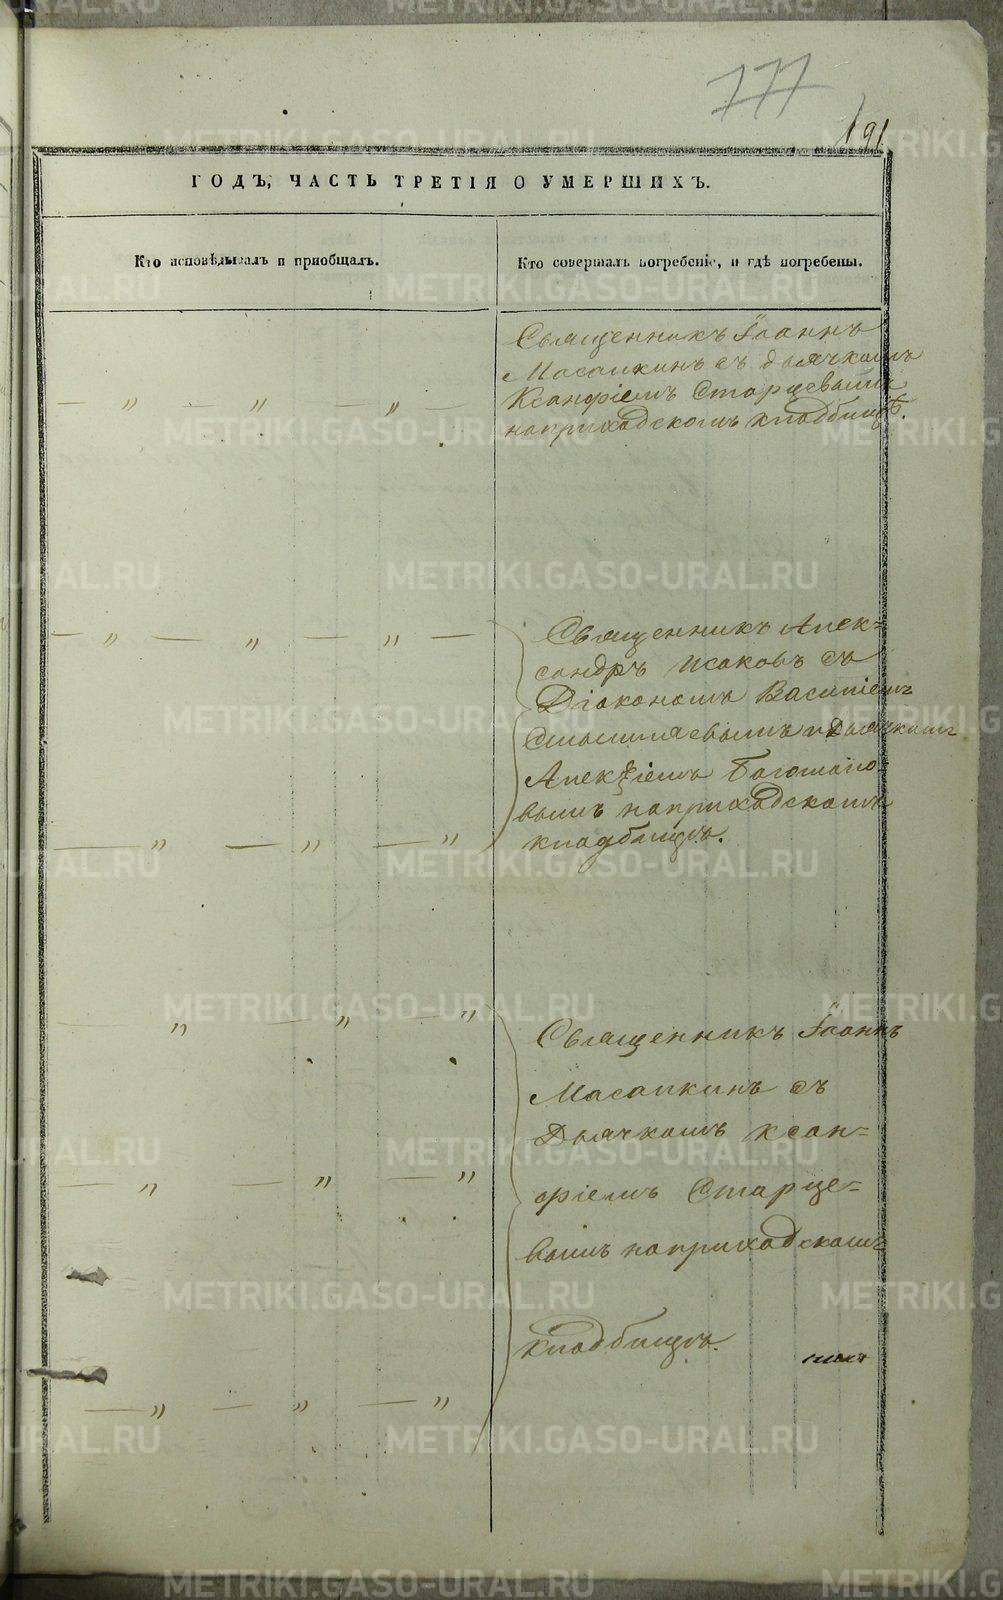 777
191
ГОДЪ, ЧАСТЬ ТРЕТІЯ О УМЕРШИХЪ.
Кто исповѣдывалъ и приобщалъ.
Кто совершалъ погребеніе, и гдѣ погребены.
Священникъ Іоаннъ
Масалкинъ съ дьячкомъ
Ксанфіемъ Старцевымъ
на приходскомъ кладбищѣ.
— „ — „ — „ —
— „ — „ — „ —
Священникъ Алек=
сандръ Исаковъ съ
Діакономъ Василіемъ
и Дьячкомъ
Алексѣемъ
вымъ на приходскомъ
кладбищѣ.
— „ — „ — „
— „ — „ — „
Священникъ Іоаннъ
Масалкинъ съ
Дьячкомъ Ксан=
фіемъ Старце=
вымъ на приходскомъ
кладбищѣ.
— „ — „ — „
— „ — „ — „
METRIKI.GASO-URAL.RU